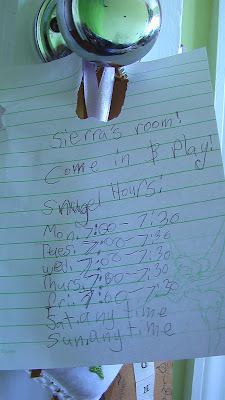 Sierra's room!
Come in & Play!
Snugel Hours:
Mon. 7:00-7:30
Tues. 7:00-7:30
wed. 7:00-7:30
Thurs. 7:00-7:30
Fri. 7:00-7:30
Sat. any time
Sun. any time